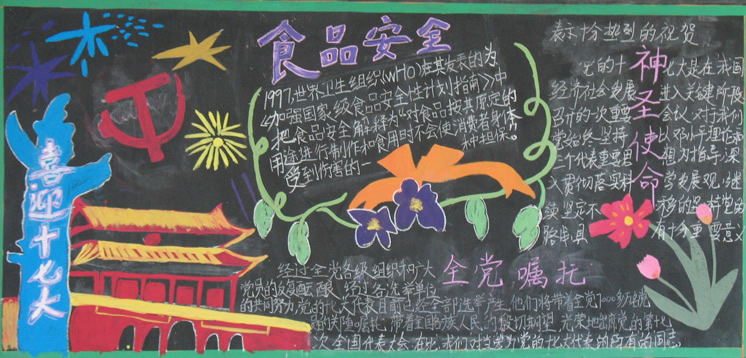 喜迎十七大
食品安全
1997,世界卫生组织(WHO)在其发表的为
《加强国家级食品安全性计划指南》中
把食品安全解释为"对食品按其原定的
用途进行制作和食用时不会使消费者身体
受到伤害的一种担保
表示十分热烈的祝贺
神圣使命
党的十七大是在我国
经济社会发展进入关键阶段
召开的一次重要会议,对于我们
党始终坚持以邓小平理论和
三个代表重要思想为指导,深
入贯彻落实科学发展观,继
续坚定不移的
有十分重要意义
全党嘱托
经过全党各级组织和广大
党员的
的共同努力,党的十七大代表目前已经全部选举产生,他们将带着全党7000多万党
员的 嘱托,带着全国各族人民的殷切期望,光荣地出席党的第十七
次全国代表大会,在此,我们对当选为党的十七大代表的所有的同志